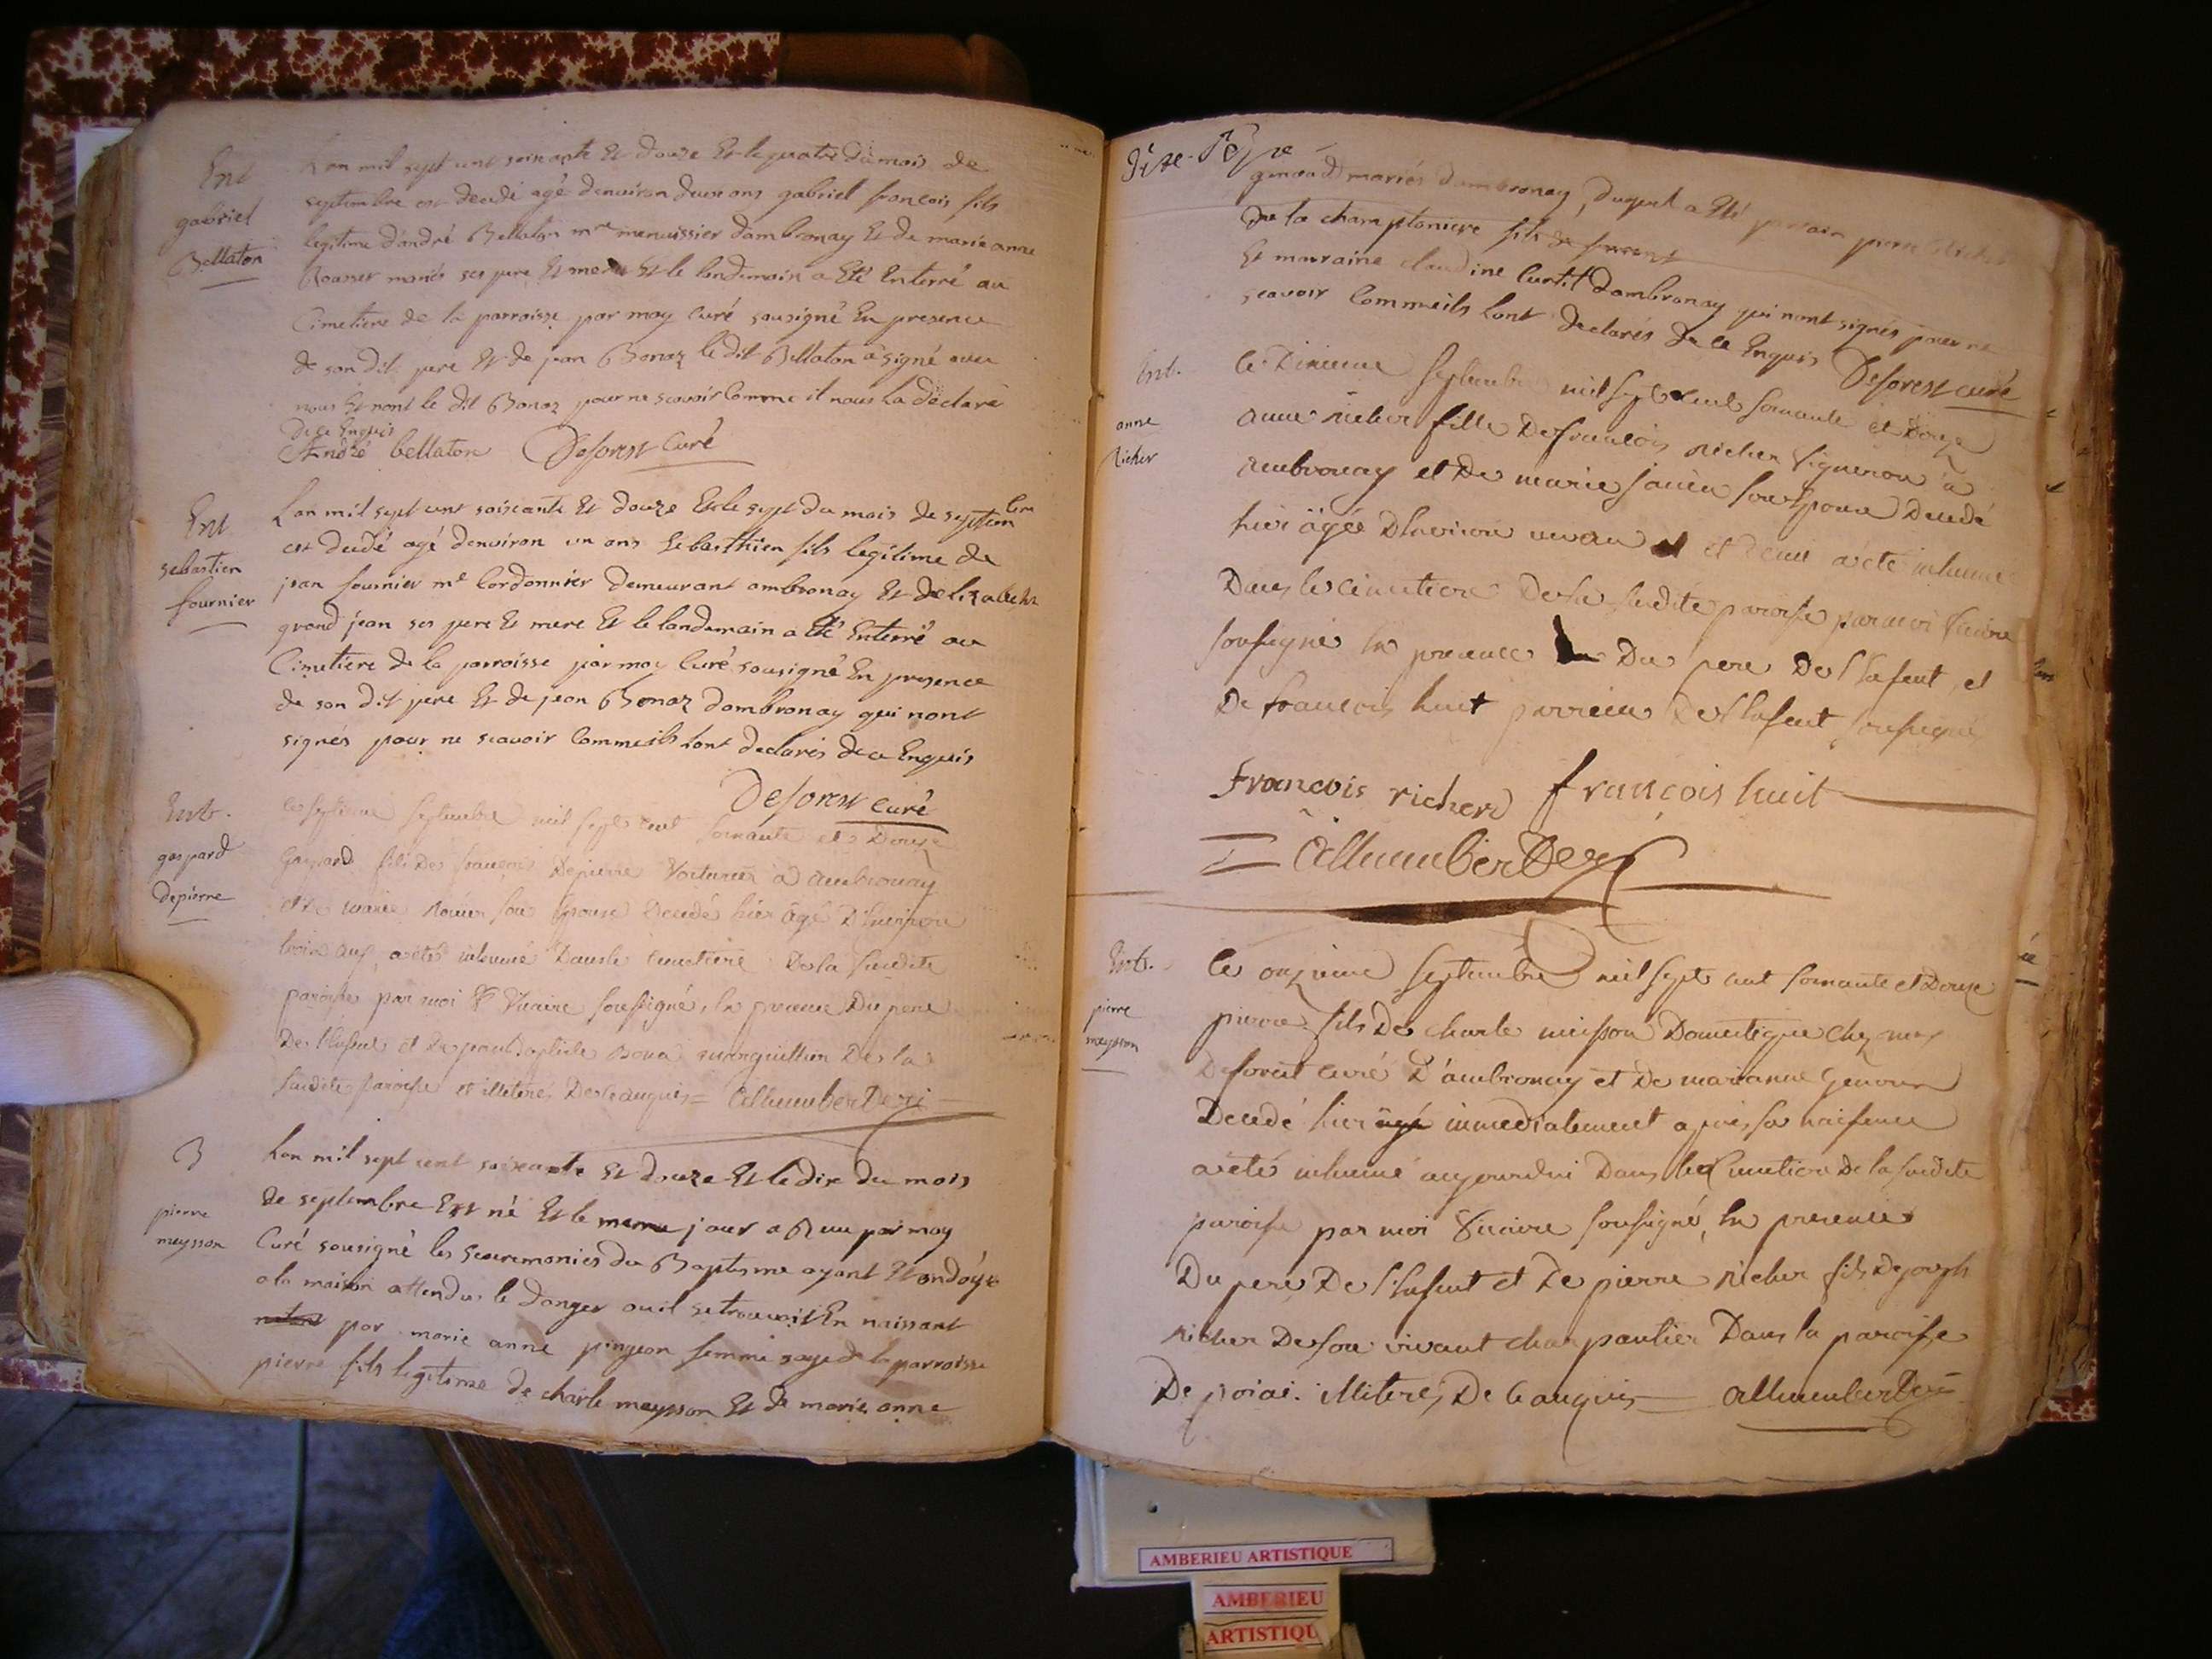 Ent
gabriel
Bellaton
Lan mil sept cent soixante Et douze Et le quatre du mois de
septembre est decedé agé denviron deux ans gabriel francois fils
legitime dandré Bellaton me menuissier dambronay Et de marie anne
mariés ses pere Et mere Et le landemain a Eté Enterré au
Cimetiere de la parroisse par moy Curé sousigné En presence
de son dit pere Et de jean Bonaz le dit Bellaton a signé avec
nous Et nont le dit Bonaz pour ne scavoir Comme il nous La declaré
de ce Enquis
André bellaton Deforest Curé
Ent
sebastien
fournier
Lan mil sept cent soixante Et douze Et le sept du mois de septembre
est decedé agé denviron un ans sebasthien fils legitime de
jean fournier me Cordonnier demeurant ambronay Et de Elizabeth
grand jean ses pere Et mere Et le landemain a Eté Enterré au
Cimetiere de la parroisse par moy Curé sousigné En presence
de son dit pere Et de jean Bonaz dambronay qui nont
signés pour ne scavoir Comme ils Lont declarés de ce Enquis
Deforest curé
Ent.
gaspard
depierre
le septieme septembre mil sept cent soixante et Douze
Gaspard fils De francois Depierre Voiturier à ambronay
et De marie son Epouse Decedé hier âgé D'Environ
trois ans, a été inhumé Dans le cimetiere De la susdite
paroisse par moi Vicaire soussigné, En presence Du pere
De l'Enfent et De jean Baptiste Bona marguillier De la
susdite paroisse et illiterés De ce anquis =
B
pierre
meysson
Lan mil sept cent soixante Et douze Et le dix du mois
de septembre Est né Et le meme jour a Reçu par moy
Curé sousigné les sceremonies du Baptesme ayant Eté ondoyé
a la maison attendus le danger ou il se trouvoit En naissant
par marie anne pingeon femme sage de la parroisse
pierre fils legitime de charle meysson Et de marie anne
mariés dambronay, duquel a Eté parrain pierre
de la champtoniere fils de
Et marraine claudine Curtil dambronay qui nont signés pour ne
scavoir Comme ils Lont declarés de ce Enquis Deforest curé
Ent.
anne
Richer
le Dixieme septembre mil sept cent soixante et Douze
anne richer fille De francois richer vigneron à
ambronay et De marie son Epouse Decedé
hier âgée D'Environ un an et demi a été inhumé
Dans le cimetiere De la susdite paroisse par moi Vicaire
soussigné En presence Du pere De l'Enfent, et
De francois huit parrein De l'Enfent soussigné
francois richerd françois huit
Ent.
pierre
meysson
le onzieme septembre mil sept cent soixante et Douze
pierre fils De charle meisson Domestique chez
Deforêt curé D'ambronay et De marianne
Decedé hier âgé immediatement apres sa naissence
a été inhumé aujourdui Dans le Cimetiere De la susdite
paroisse par moi Vicaire soussigné, En presence
Du pere De l'Enfent et De pierre richer fils De joseph
richer De son vivant charpantier Dans la paroisse
De illiterés De ce anquis
AMBERIEU ARTISTIQUE
AMBERIEU
ARTISTIQU